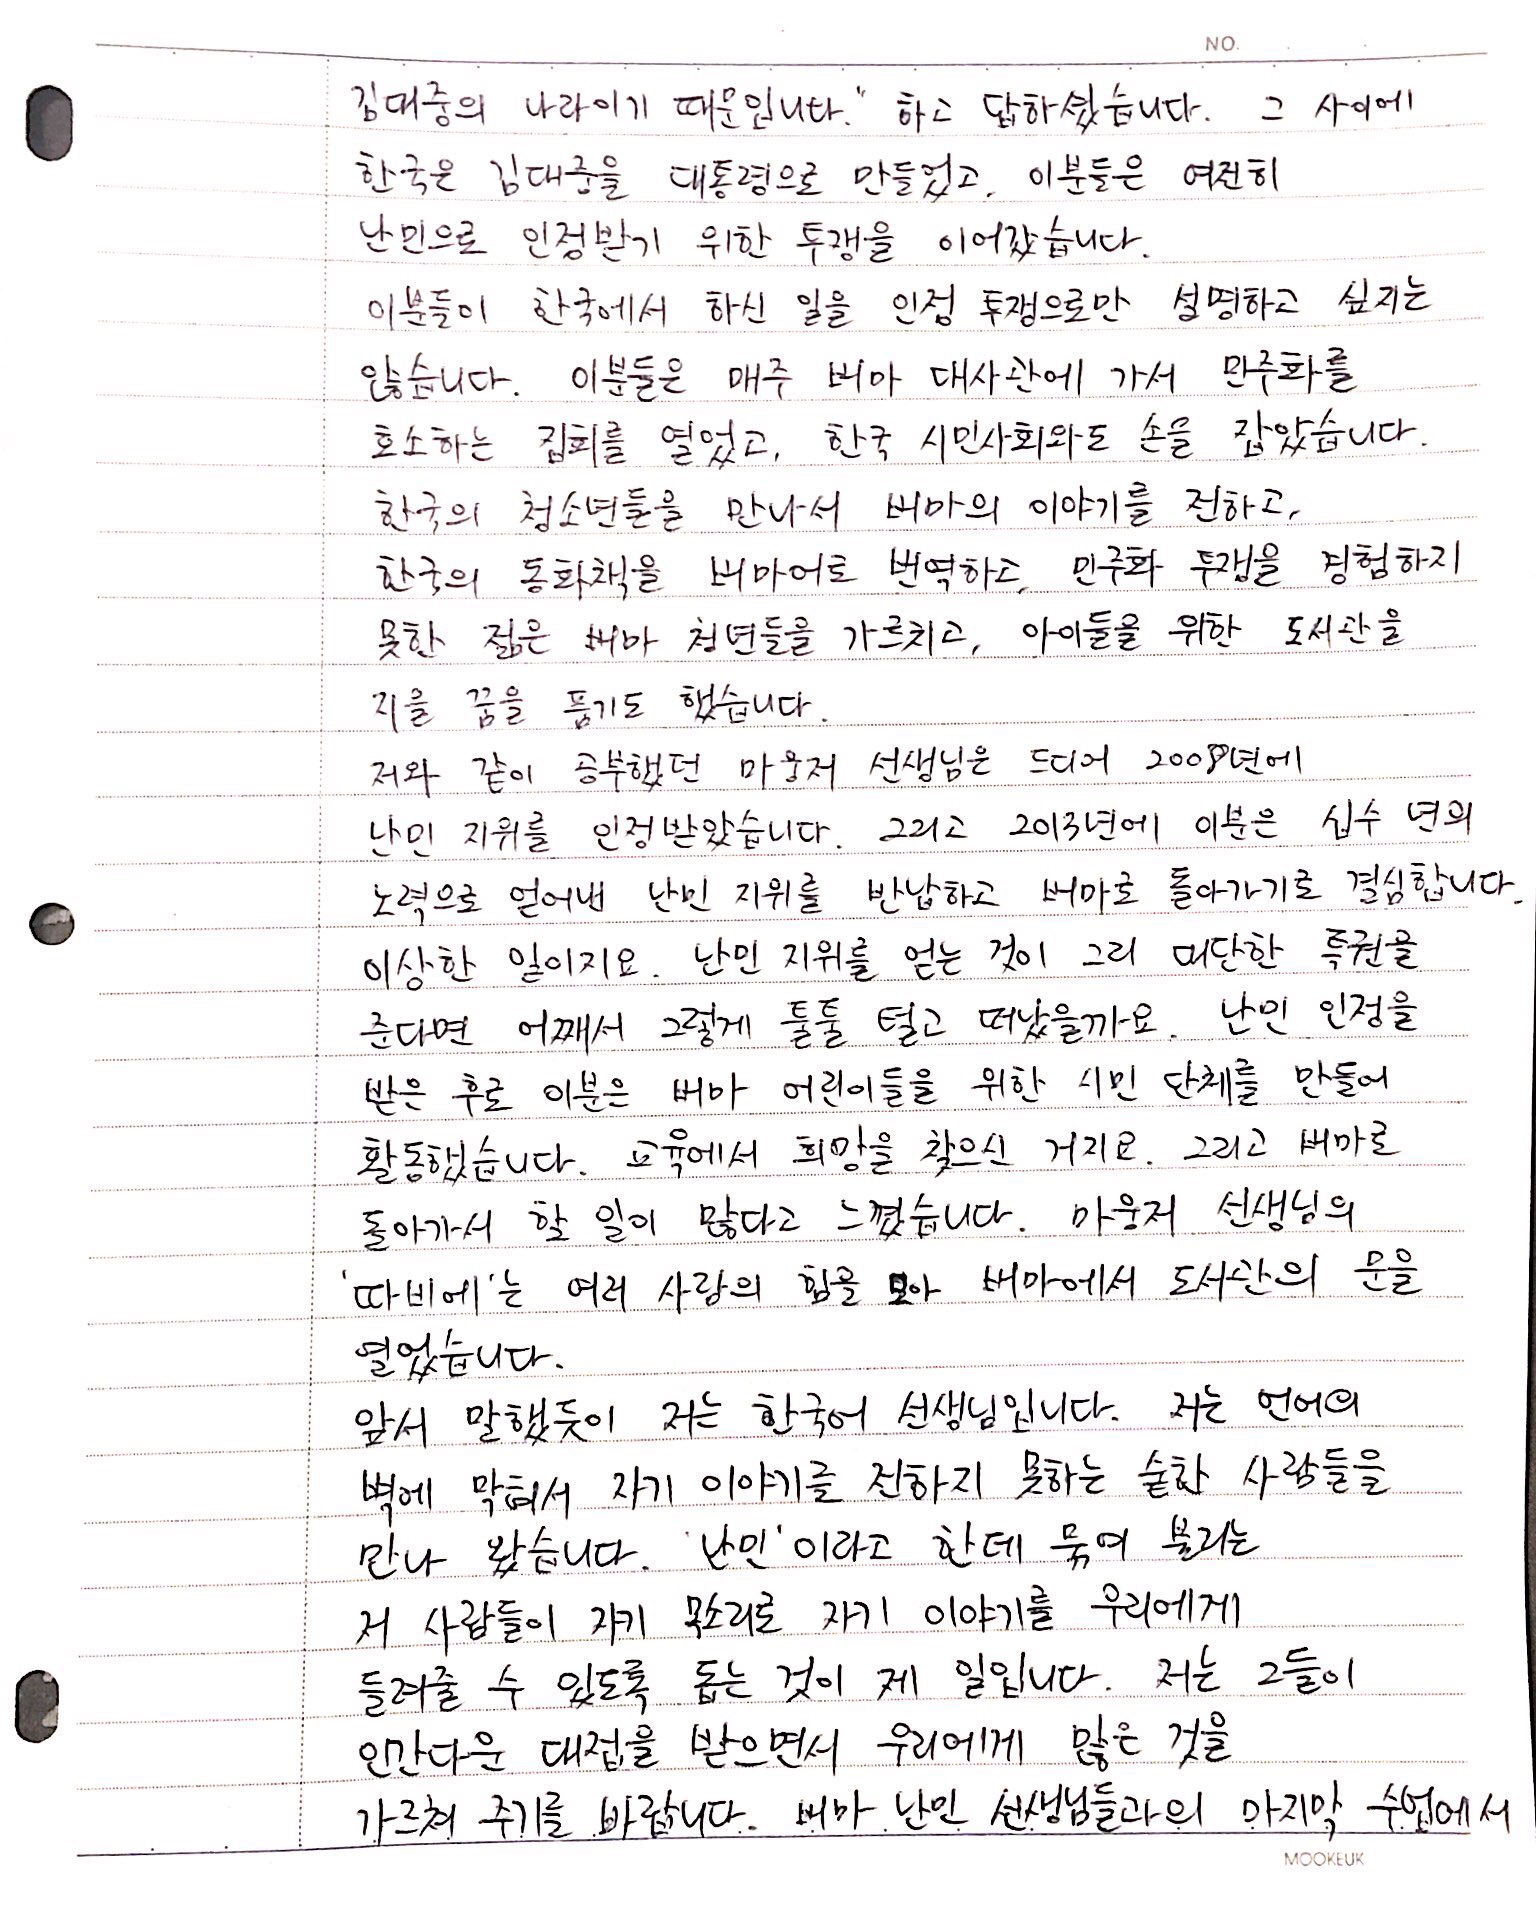 NO.
김대중의 나라이기 때문입니다." 하고 답하셨습니다. 그 사이에
한국은 김대중을 대통령으로 만들었고, 이분들은 여전히
난민으로 인정받기 위한 투쟁을 이어갔습니다.
이분들이 한국에서 하신 일을 인정 투쟁으로만 설명하고 싶지는
않습니다. 이분들은 매주 버마 대사관에 가서 민주화를
호소하는 집회를 열었고, 한국 시민사회와도 손을 잡았습니다.
한국의 청소년들을 만나서 버마의 이야기를 전하고,
한국의 동화책을 버마어로 번역하고, 민주화 투쟁을 경험하지
못한 젊은 버마 청년들을 가르치고, 아이들을 위한 도서관을
지을 꿈을 품기도 했습니다.
저와 같이 공부했던 마웅저 선생님은 드디어 2008년에
난민 지위를 인정받았습니다. 그리고 2013년에 이분은 십수 년의
노력으로 얻어낸 난민 지위를 반납하고 버마로 돌아가기로 결심합니다.
이상한 일이지요. 난민 지위를 얻는 것이 그리 대단한 특권을
준다면 어째서 그렇게 툴툴 털고 떠났을까요. 난민 인정을
받은 후로 이분은 버마 어린이들을 위한 시민 단체를 만들어
활동했습니다. 교육에서 희망을 찾으신 거지요. 그리고 버마로
돌아가서 할 일이 많다고 느꼈습니다. 마웅저 선생님의
'따비에'는 여러 사람의 힘을 모아 버마에서 도서관의 문을
열었습니다.
앞서 말했듯이 저는 한국어 선생님입니다. 저는 언어의
벽에 막혀서 자기 이야기를 전하지 못하는 숱한 사람들을
만나 왔습니다. '난민'이라고 한데 묶여 불리는
저 사람들이 자기 목소리로 자기 이야기를 우리에게
들려줄 수 있도록 돕는 것이 제 일입니다. 저는 그들이
인간다운 대접을 받으면서 우리에게 많은 것을
가르쳐 주기를 바랍니다. 버마 난민 선생님들과의 마지막 수업에서
MOOKEUK